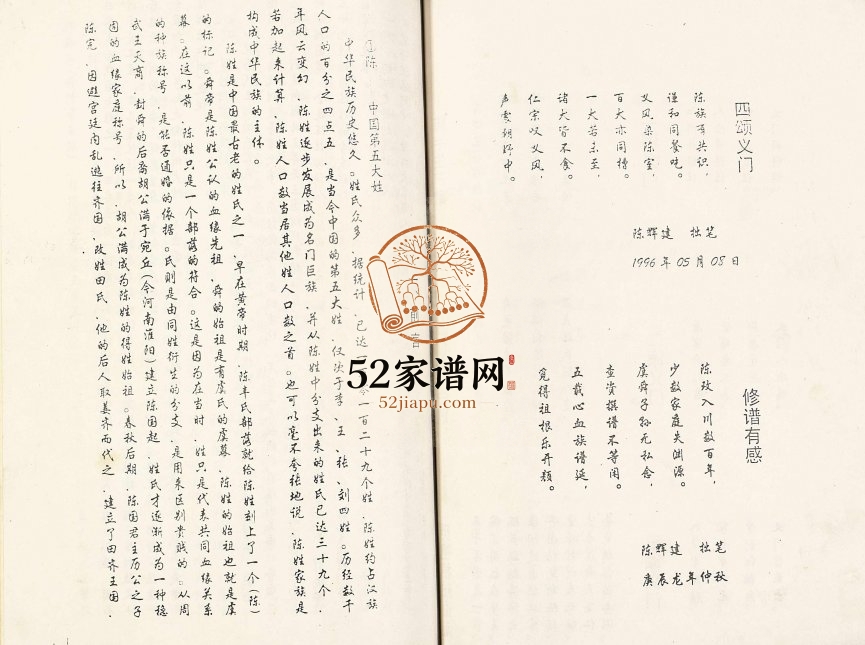 四颂义门
陈族有共识,
谨和同餐吃。
义风染陈室,
百犬亦同槽。
一犬若未至,
诸犬皆不食。
仁宗叹义风,
声震朝野中。
陈辉建 拙笔
1996年05月08日
修谱有感
陈玫入川数百年,
少数家庭失渊源。
虞舜子孙无私念,
查资撰谱不等闲。
五载心血族谱延,
觅得祖根乐开颜。
陈辉建 拙笔
庚辰龙年仲秋
前言
①陈 中国第五大姓
中华民族历史悠久。姓氏众多.据统计.已达 一百二十九个姓.陈姓约占汉族
人口的百分之四点五.是当今中国的第五大姓.仅次于李、王、张、刘四姓。历经数千
年风云变幻.陈姓逐步发展成为名门巨族.并从陈姓中分支出来的姓氏已达三十九个.
若加起来计算.陈姓人口数当居其他姓人口数之首。也可以毫不夸张地说.陈姓家族是
构成中华民族的主体。
陈姓是中国最古老的姓氏之一.早在黄帝时期.陈丰氏部落就给陈姓刻上了一个(陈)
的标记。舜帝是陈姓公认的血缘先祖.舜的始祖是有虞氏的虞幕.陈姓的始祖也就是虞
幕。在这以前.陈姓只是一个部落的符合。这是因为在当时.姓只是代表共同血缘关系
的种族称号.是能否通婚的依据。氏则是由同姓衍生的分支.是用来区别贵贱的。从周
武王灭商.封舜的后裔胡公满于宛丘(今河南淮阳)建立陈国起.姓氏才逐渐成为一种稳
固的血缘家庭称号.所以.胡公满成为陈姓的得姓始祖。春秋后期.陈国君主厉公之子
陈完.因避宫廷内乱逃往齐国.改姓田氏.他的后人取姜齐而代之.建立了田齐王国.
52家谱网
52jiapu.com